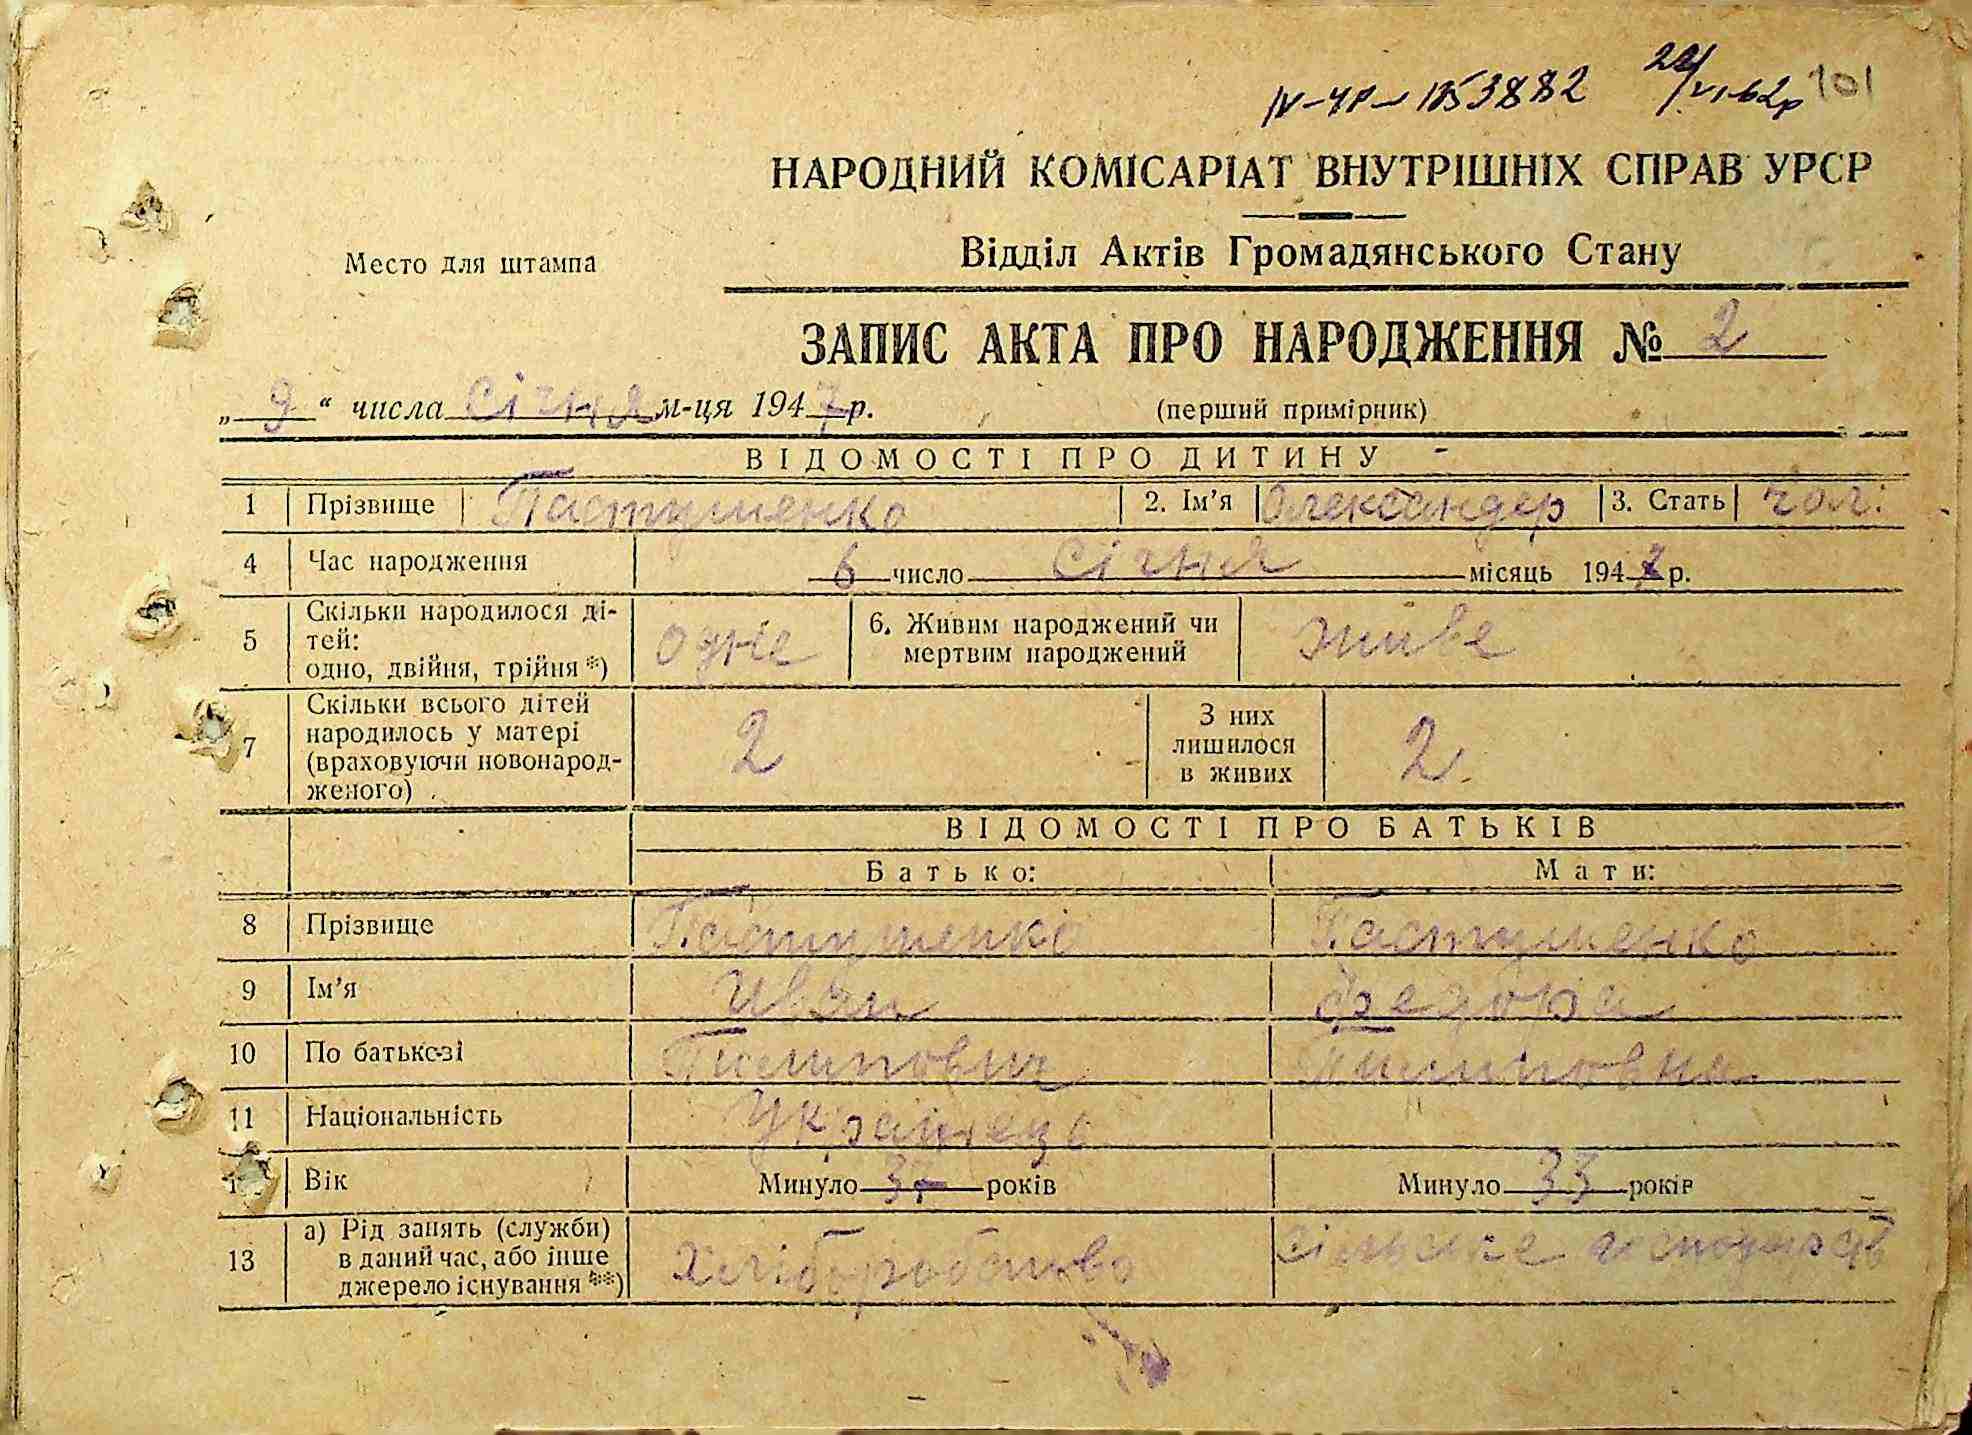 IV-ЧР-153882 22/VI-62р 101
НАРОДНИЙ КОМІСАРІАТ ВНУТРІШНІХ СПРАВ УРСР
Место для штампа
Відділ Актів Громадянського Стану
ЗАПИС АКТА ПРО НАРОДЖЕННЯ № 2
„ 9 “ числа січня м-ця 1947 р. (перший примірник)
ВІДОМОСТІ ПРО ДИТИНУ
1 Прізвище Пастушенко 2. Ім'я Олександер 3. Стать чол.
4 Час народження 6 число січня місяць 1947 р.
5 Скільки народилося ді-
тей:
одно, двійня, трійня *) одне 6. Живим народжений чи
мертвим народжений живе
7 Скільки всього дітей
народилось у матері
(враховуючи новонарод-
женого) 2 З них
лишилося
в живих 2.
ВІДОМОСТІ ПРО БАТЬКІВ
Батько: Мати:
8 Прізвище Пастушенко Пастушенко
9 Ім'я Иван Федора
10 По батькові Пилипович Пилиповна
11 Національність Українець
Вік Минуло 37 років Минуло 33 років
13 а) Рід занять (служби)
в даний час, або інше
джерело існування **) Хліборобство сільське господарств